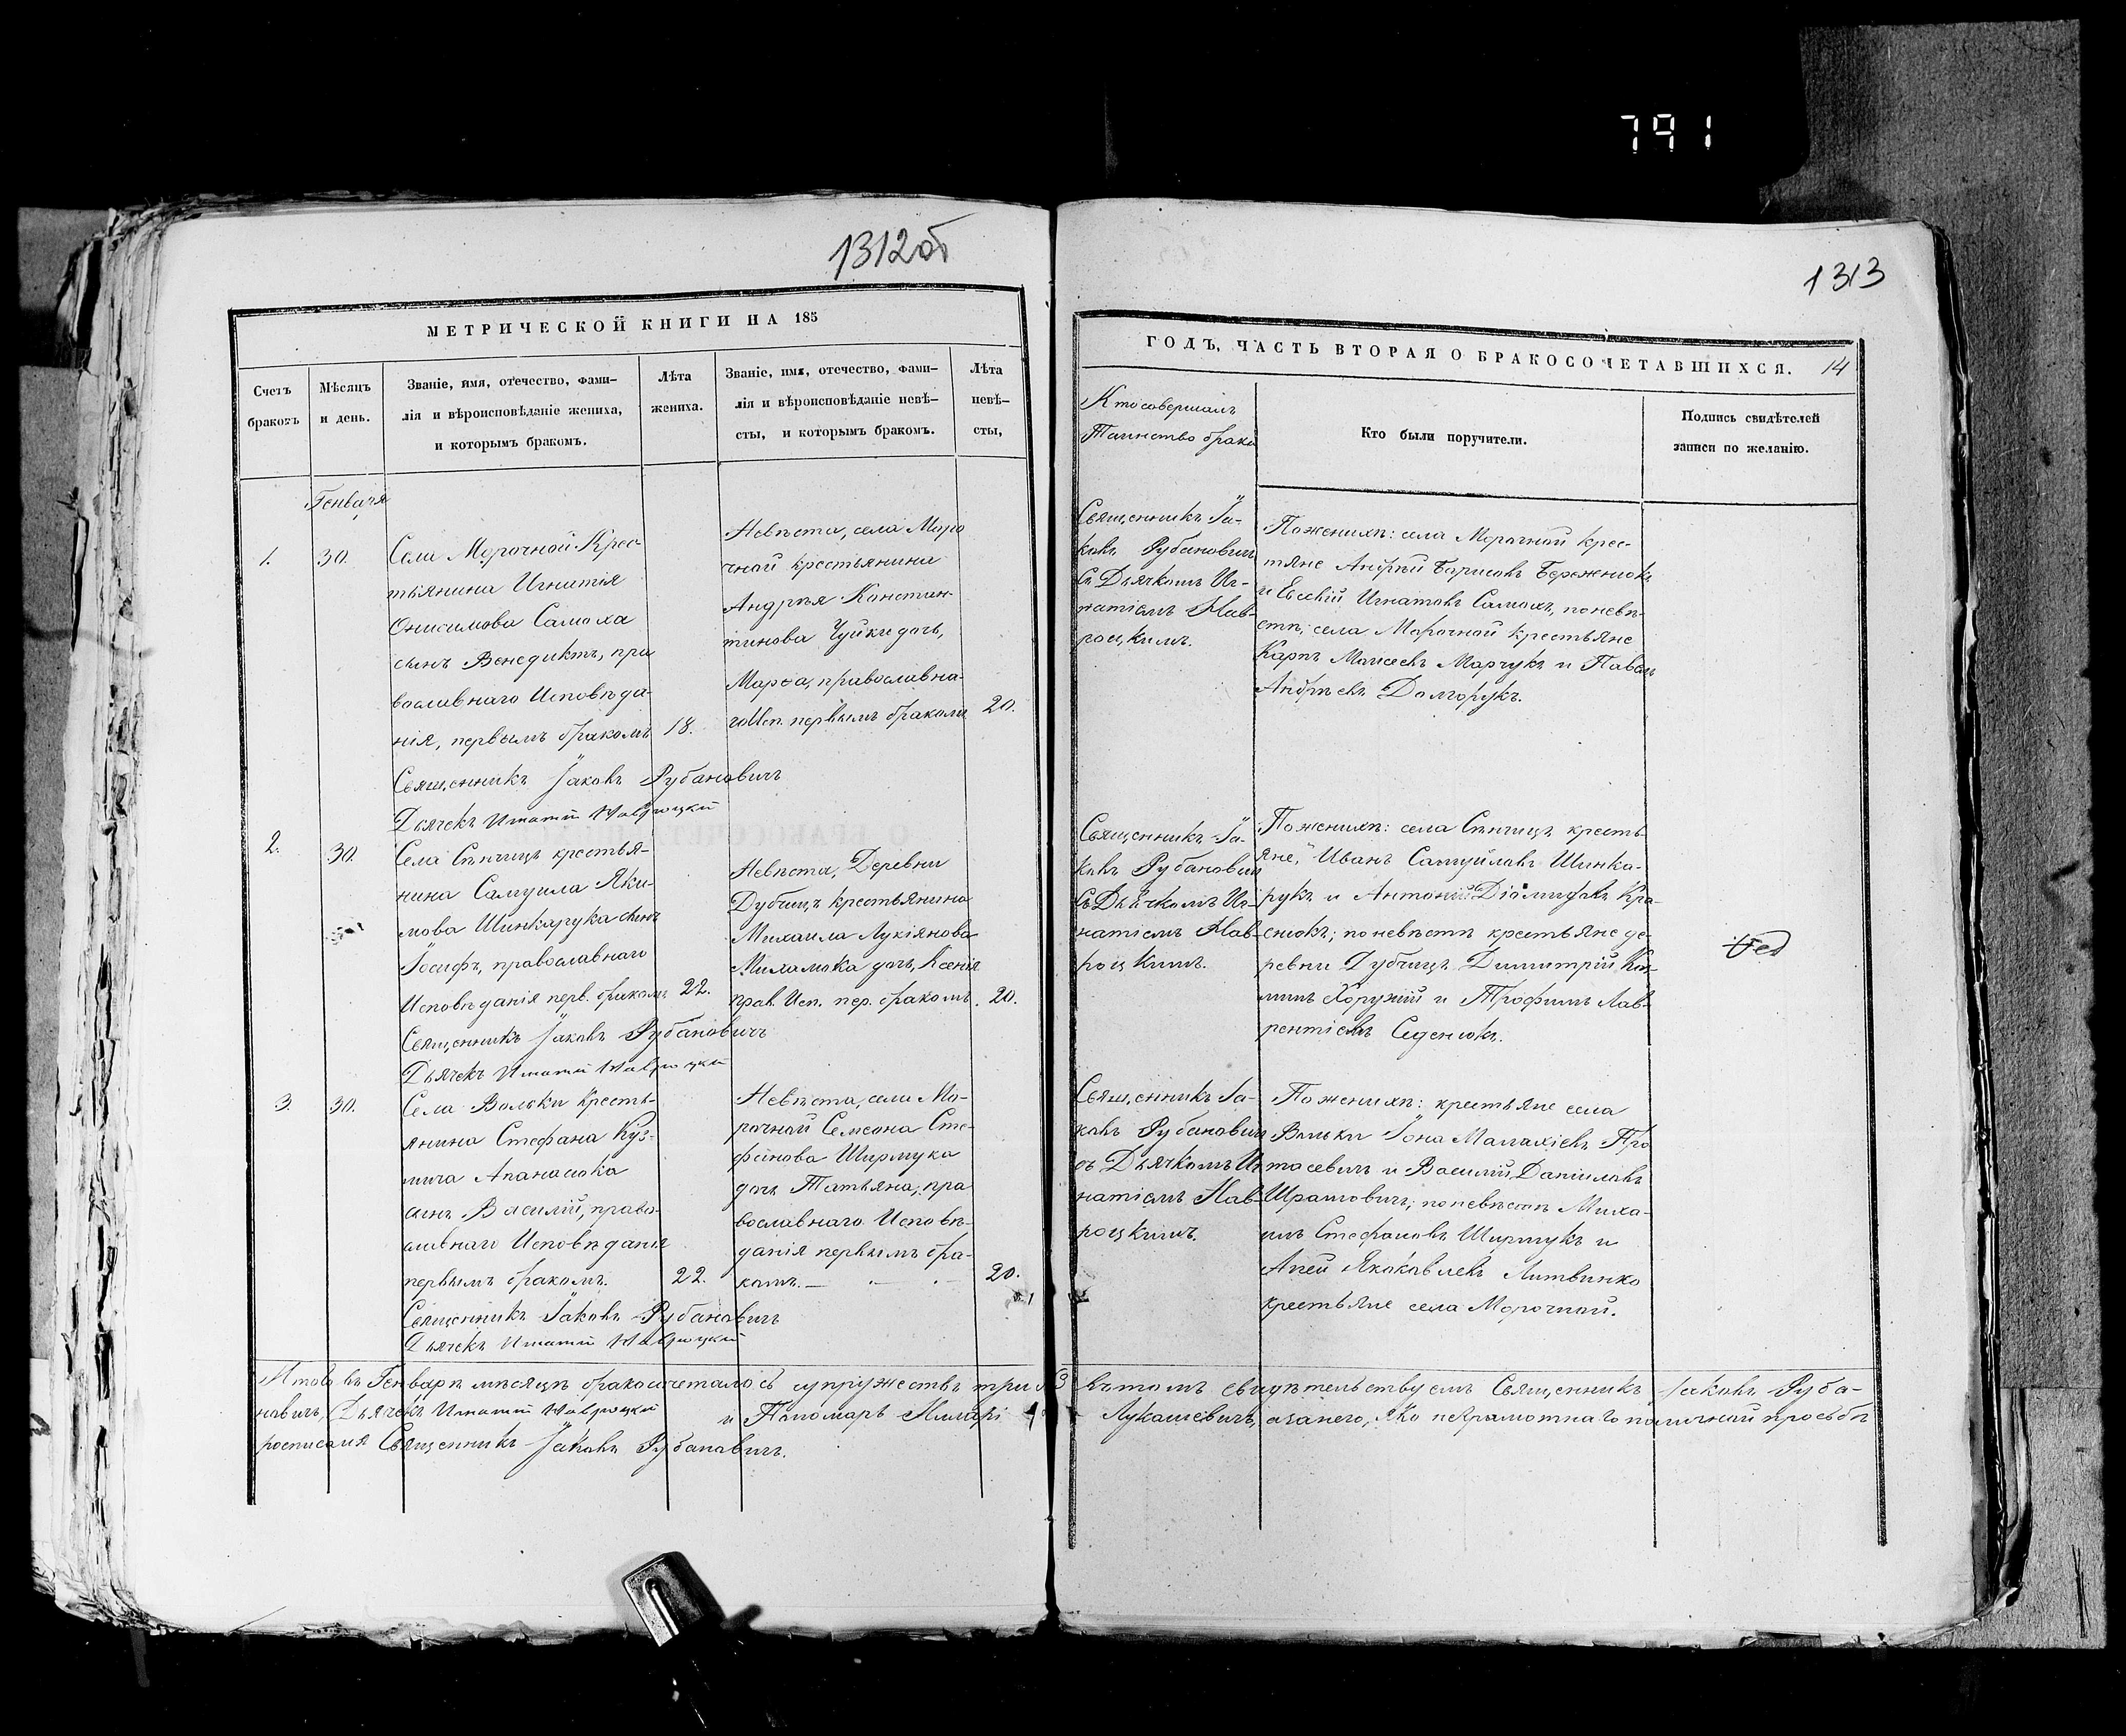 791
1312об
1313
МЕТРИЧЕСКОЙ КНИГИ НА 185
ГОДЪ, ЧАСТЬ ВТОРАЯ О БРАКОСОЧЕТАВШИХСЯ. 14
Счетъ
браковъ
Мѣсяцъ
и день.
Званіе, имя, отечество, фами-
лія и вѣроисповѣданіе жениха,
и которымъ бракомъ.
Лѣта
жениха.
Званіе, имя, отечество, фами-
лія и вѣроисповѣданіе невѣ-
сты, и которымъ бракомъ.
Лѣта
невѣ-
сты,
Кто совершалъ
Таинство брака
Кто были поручители.
Подпись свидѣтелей
записи по желанію.
Генваря
1.
30.
Села Морочной Крес-
тьянина Игнатія
Онисимова Самоха
сынъ Венедиктъ, пра
вославнаго Исповѣда-
нія, первымъ бракомъ
18.
Невѣста, села Моро
чной крестьянина
Андрея Констан-
тинова Чуйки дочь,
Марѳа, православна-
го Исп. первымъ бракомъ
20.
Священникъ Іаковъ Рубановичъ
Дьячекъ Игнатій Навроцкій
Священникъ Іа-
ковъ Рубановичъ
Съ Дьячкомъ Иг-
натіемъ Нав-
роцкимъ.
По женихѣ: села Морочной крес-
тяне Андрей Борисовъ Бережнюкъ
и Евсевій Игнатовъ Самохъ, по невѣ-
стѣ; села Морочной крестьяне
Карпъ Моисеевъ Марчукъ и Павелъ
Андреевъ Долгорукъ.
2.
30.
Села Сѣнчицъ крестья-
нина Самуила Яки-
мова Шинкарука сынъ
Іосифъ, православнаго
Исповѣданія перв. бракомъ
22.
Невѣста, Деревни
Дубчицъ крестьянина
Михаила Лукіянова
Михамока дочь, Ксенія
прав. Исп. пер. бракомъ.
20.
Священникъ Іаковъ Рубановичъ
Дьячекъ Игнатій Навроцкій
Священникъ Іа-
ковъ Рубановичъ
Съ Дьячкомъ Иг-
натіемъ Нав-
роцкимъ.
По женихѣ: села Сѣнчицъ кресть-
яне, Иванъ Самуйловъ Шинка-
рукъ и Антоній Діомидовъ Кра-
снюкъ; по невѣстѣ крестьяне де-
ревни Дубчицъ Димитрій
Хоружій и Трофимъ Лав-
рентіевъ Седенюкъ.
3.
30.
Села Вольки Кресть-
янина Стефана Куз-
мича Апанасюка
сынъ Василій, право-
славнаго Исповѣданія
первымъ бракомъ.
22.
Невѣста, села Мо-
рочной Семеона Сте-
фанова Ширмука
дочь Татьяна, пра
вославнаго Исповѣ-
данія первымъ бра-
комъ.
20.
Священникъ Іаковъ Рубановичъ
Дьячекъ Игнатій Навроцкій
Священникъ Іа-
ковъ Рубановичъ
съ Дьячкомъ Иг-
натіемъ Нав-
роцкимъ.
По женихѣ: крестьяне села
Вольки Іона Малахіевъ Про
тасевичъ и Василій Даніиловъ
Шрамовичъ; по невѣстѣ Миха-
илъ Стефановъ Ширмукъ и
Литвинко
крестьяне села Морочной.
Итого въ Генварѣ мѣсяцѣ бракосочеталось супружествъ три 3 въ томъ свидѣтельствуемъ Священникъ Іаковъ Руба-
новичъ, Дьячекъ Игнатій Навроцкій и Пономарь Лукашевичъ, а за него, яко неграмотнаго по личной просьбѣ
росписался Священникъ Іаковъ Рубановичъ.